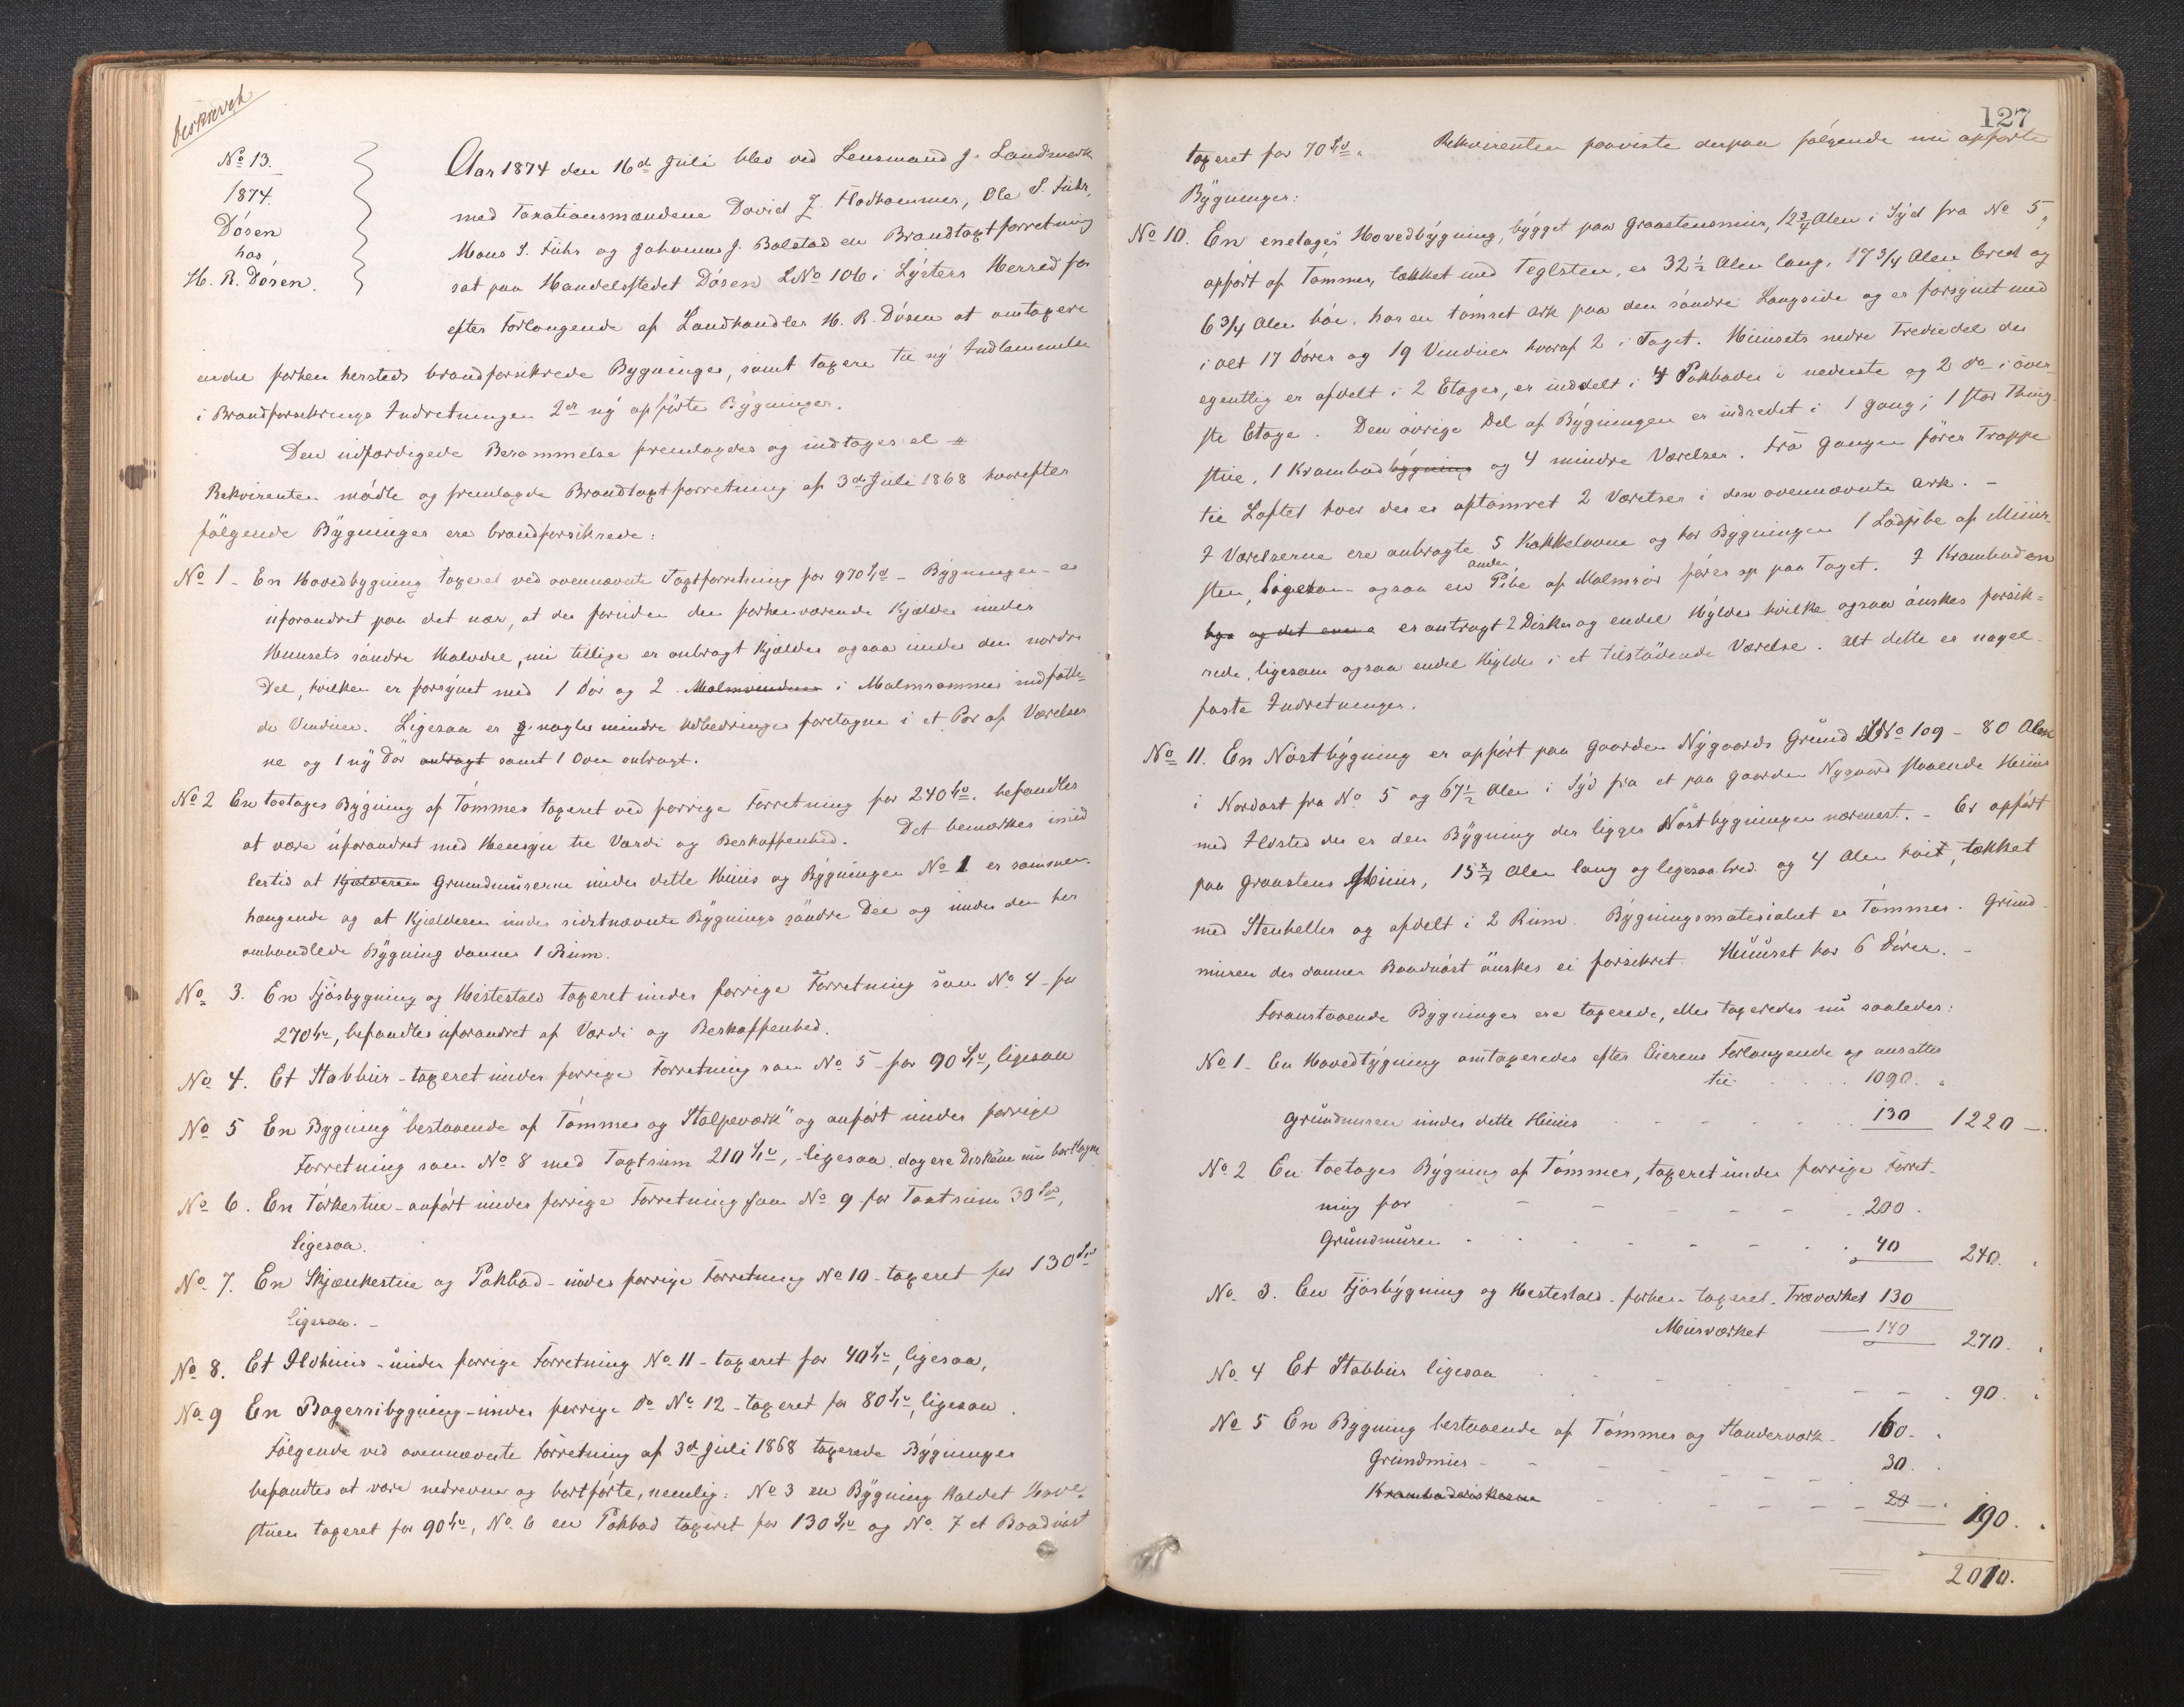 beskrevet
No 13.
1874.
Dösen
hos
H. R. Dösen.
Aar 1874 den 16d Juli blev ved Lensmand J. Landmark
med Taxationsmændene David J. Flodhammer, Ole S. Fuhr,
Mons S. Fuhr og Johannes J. Bolstad en Brandtaxtforretning
sat paa Handelsstedet Dösen LNo 106 i Lysters Herred for
efter Forlangende af Landhandler H. R. Dösen at omtaxere
endel forhen hersteds brandforsikrede Bygninger, samt taxere til ny Indlemmelse
i Brandforsikrings Indretningen 2de ny opförte Bygninger.
Den udfærdigede Berammelse fremlagdes og indtages el
Rekvirenten mödte og fremlagde Brandtaxtforretning af 3d Juli 1868 hvorefter
fölgende Bygninger ere brandforsikrede:
No 1 - En Hovedbygning taxeret ved ovennævnte Taxtforretning for 970 Spd - Bygningen er
uforandret paa det nær, at der foruden den forhenværende Kjælder under
Huusets söndre Halvdel, nu tillige er anbragt Kjælder ogsaa under den nordre
Del, hvilken er forsynet med 1 Dör og 2 Malmvinduer i Malmrammer indfatte-
de Vinduer. Ligesaa er nogle mindre Udbedringer foretagne i et Par af Værelser
ne og 1 ny Dör anbragt samt 1 Oven anbragt.
No 2 En toetages Bygning af Tömmer taxeret ved forrige Forretning for 240 Spd. befandtes
at være uforandret med Hensyn til Værdi og Beskaffenhed. Det bemærkes imid
lertid at Kjælderen Grundmurerne under dette Huus og Bygningen No 1 er sammen-
hængende og at Kjælderen under sidstnævnte Bygnings söndre Del og under den her
omhandlede Bygning danner 1 Rum.
No 3. En Fjösbygning og Hestestald taxeret under forrige Forretning som No 4 for
270 Spd, befandtes uforandret af Værdi og Beskaffenhed.
No 4. Et Stabbur - taxeret under forrige Forretning som No 5 for 90 Spd, ligesaa
No 5 En Bygning "bestaaende af Tömmer og Stolpeværk" og anfört under forrige
Forretning som No 8 med Taxtsum 210 Spd, - ligesaa. dog ere Diskene nu borttagne
No 6. En Törkestue - anfört under forrige Forretning som No 9 for Taxtsum 30 Spd,
ligesaa.
No 7. En Skjænkestue og Pakbod - under forrige Forretning No 10 - taxeret for 130 Spd
ligesaa. -
No 8. Et Ildhuus - under forrige Forretning No 11 - taxeret for 40 Spd, ligesaa,
No 9 En Bageribygning - under forrige do No 12 - taxeret for 80 Spd, ligesaa.
Fölgende ved ovennævnte Forretning af 3d Juli 1868 taxerede Bygninger
befandtes at være nedrevne og bortförte, nemlig: No 3 en Bygning kaldet Have-
stuen taxeret for 90 Spd, No 6 en Pakbod taxeret for 130 Spd og No 7 et Baadnöst
127
taxeret for 70 Spd. Rekvirenten paaviste derpaa fölgende nu opförte
Bygninger:
No 10. En enetages Hovedbygning, bygget paa Graastensmuur, 12 3/4 Alen i Syd fra No 5,
opfört af Tömmer, tækket med Teglsten, er 32 1/2 Alen lang, 17 3/4 Alen bred og
6 3/4 Alen höi, har en tömret Ark paa den söndre Langside og er forsynet med
i alt 17 Dörer og 19 Vinduer hvoraf 2 i Taget. Huusets nedre Trediedel der
egentlig er afdelt i 2 Etager, er inddelt i 4 Pakboder i nederste og 2 do i över-
ste Etage. Den övrige Del af Bygningen er indredet i 1 Gang, 1 stor Thing-
stue, 1 Krambod bygning og 4 mindre Værelser. Fra Gangen förer Trappe
til Loftet hvor der er optömret 2 Værelser i den ovennævnte Ark. -
I Værelserne ere anbragte 5 Kakkelovne og har Bygningen 1 Ladpibe af Muur-
sten, ligesom ogsaa en anden Pibe af Malmrör förer op paa Taget. I Kramboden
og det ene er anbragt 2 Disker og endel Hylder hvilke ogsaa önskes forsik-
rede, ligesom ogsaa endel Hylder i et tilstödende Værelse. Alt dette er nagel-
faste Indretninger.
No 11. En Nöstbygning er opfört paa Gaarden Nygaards Grund LNo 109 - 80 Alen
i Nordost fra No 5 og 67 1/2 Alen i Syd fra et paa Gaarden Nygaard staaende Huus
med Ildsted der er den Bygning der ligger Nöstbygningen nærmest. - Er opfört
paa Graastens Muur, 15 Alen lang og ligesaa bred og 4 Alen höit, tækket
med Stenheller og afdelt i 2 Rum. Bygningsmaterialet er Tömmer. Grund-
muren der danner Baadnöst önskes ei forsikret. Huuset har 6 Dörer. -
Foranstaaende Bygninger ere taxerede, eller taxeredes nu saaledes:
No 1 - En Hovedbygning omtaxeredes efter Eierens Forlangende og ansattes
til 1090.
Grundmuren under dette Huus 130 1220 -.
No 2 En toetages Bygning af Tömmer, taxeret under forrige Forret-
ning for 200.
Grundmuren 40 240.
No 3. En Fjösbygning og Hestestald - forhen taxeret - Træverket 130
Muurværket 140 270.
No 4 Et Stabbur ligesaa 90.
No 5 En Bygning bestaaende af Tömmer og Standerværk - 160 -
Grundmuur 30.
Krambodsdiskerne 20 190.
2010.